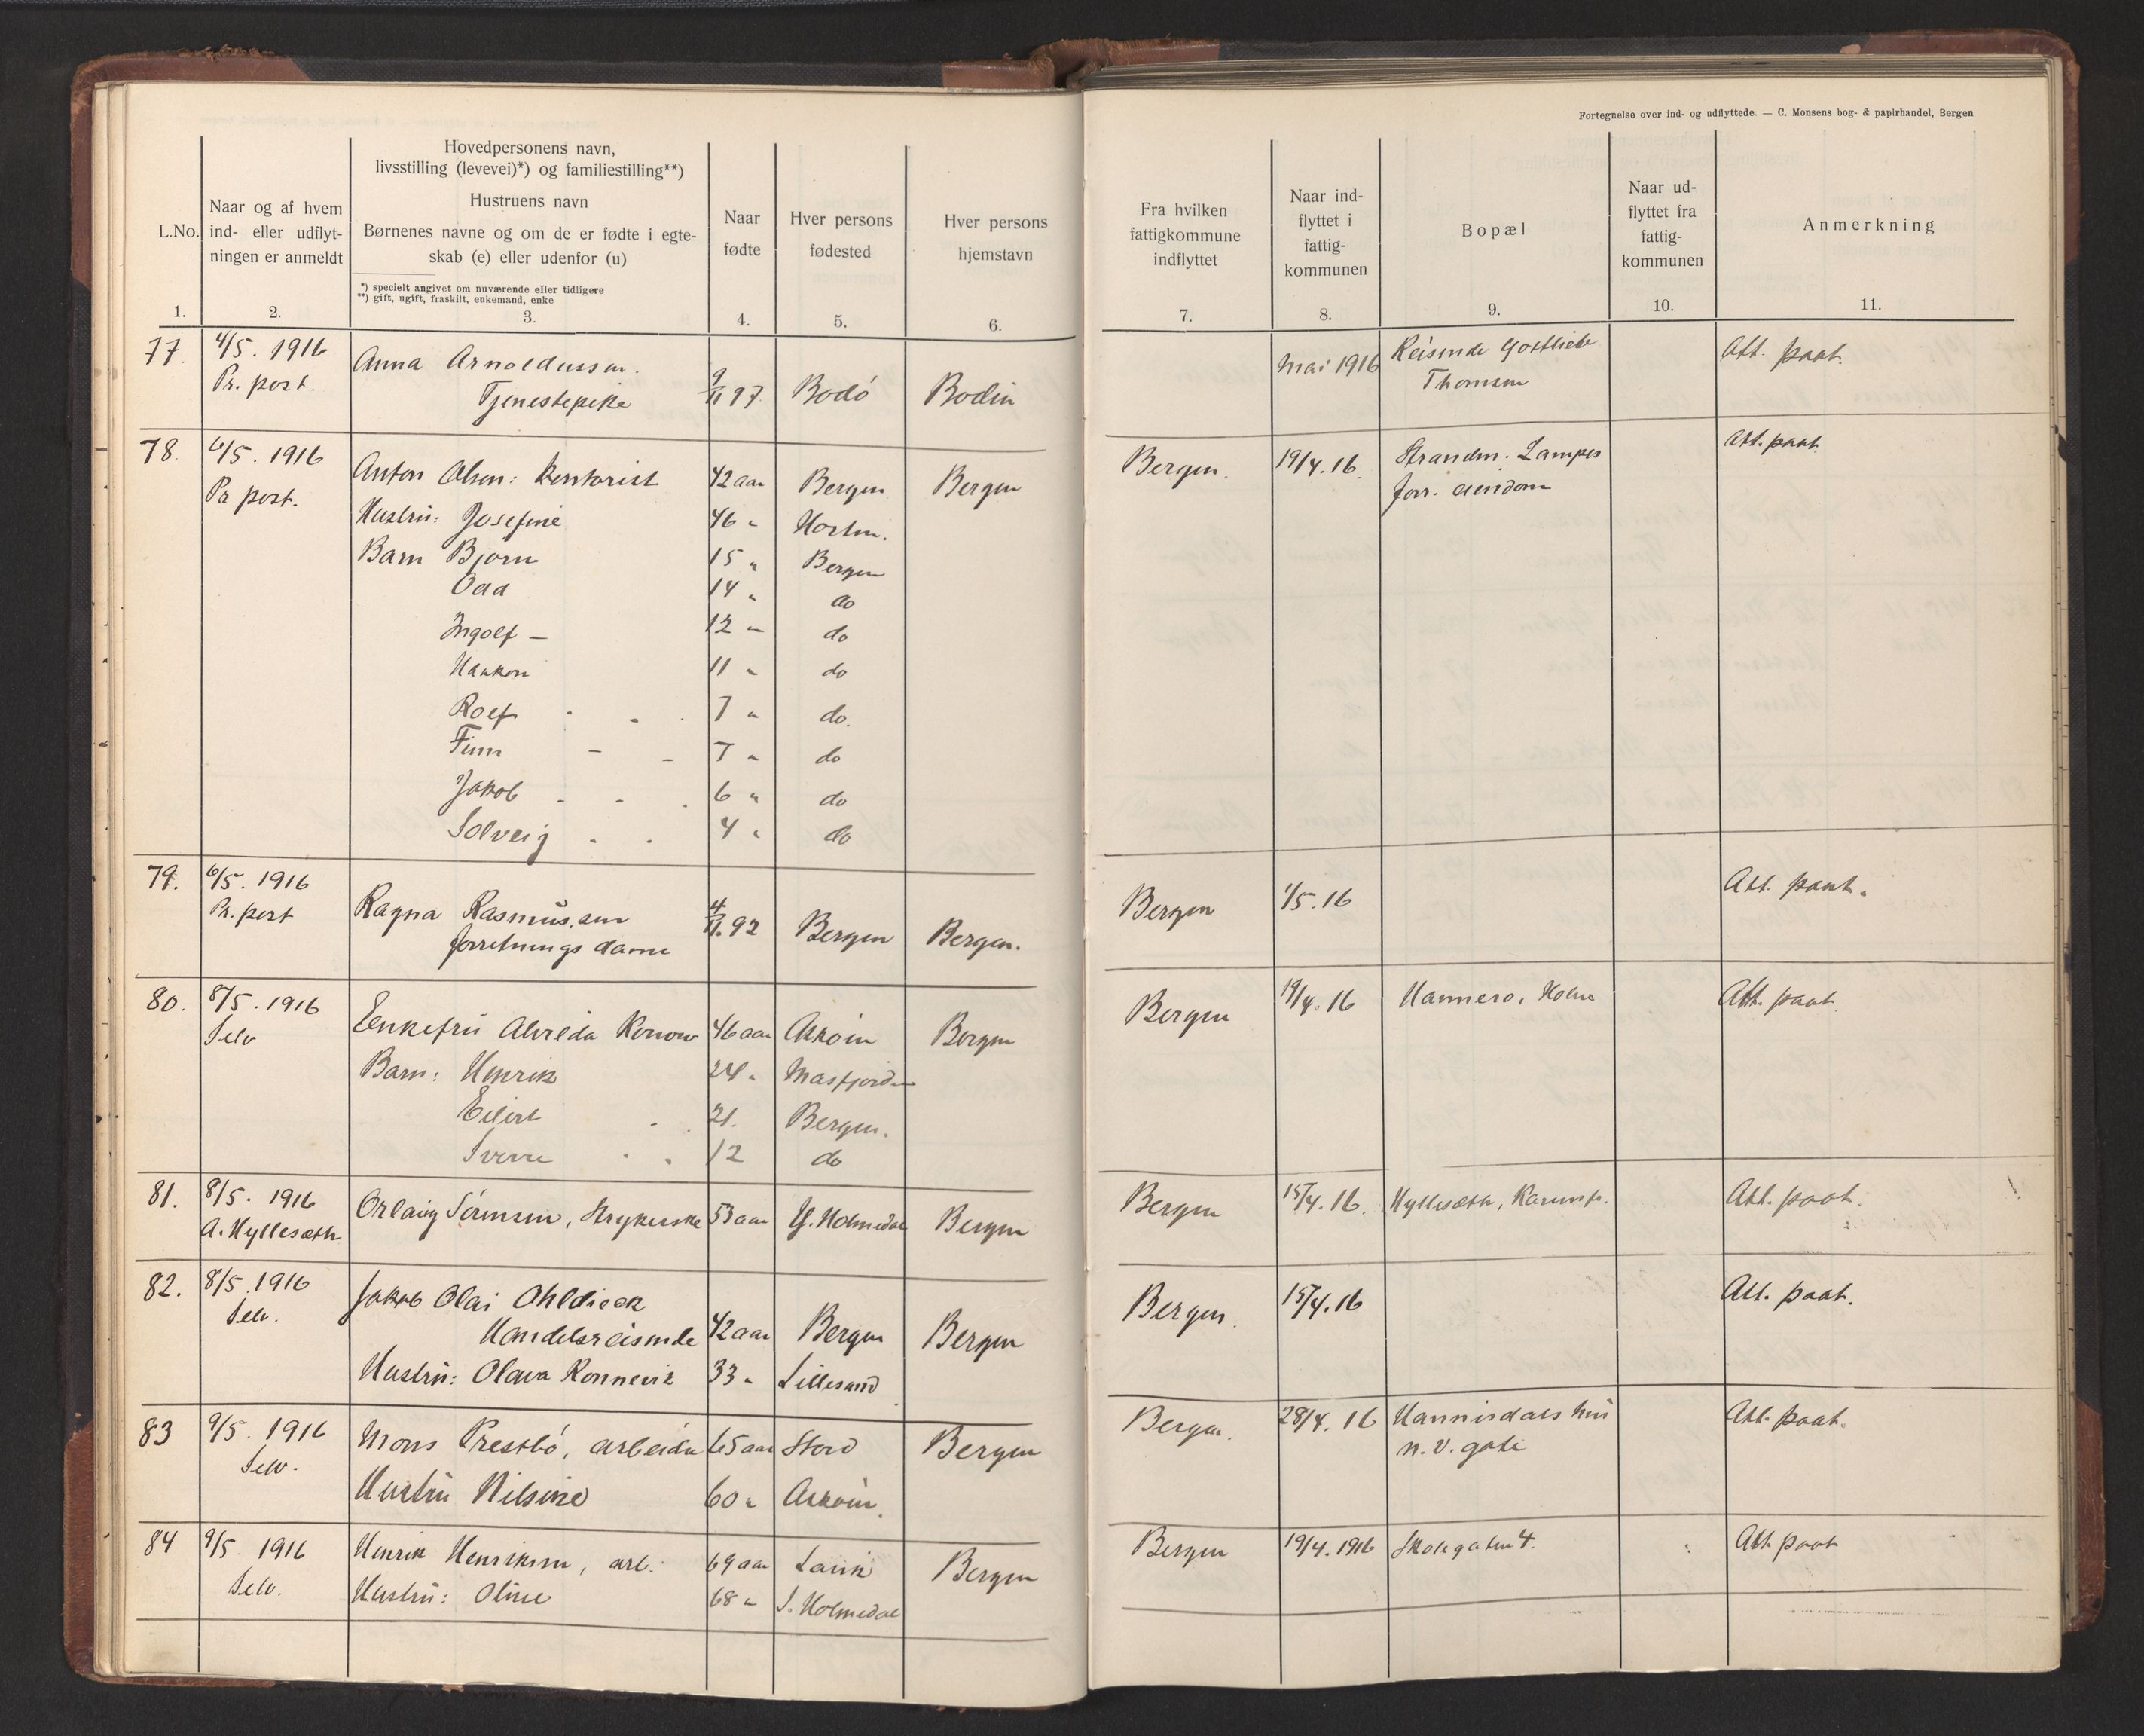 Fortegnelse over ind- og udflyttede. — C. Monsens bog- & papirhandel, Bergen
L.No.
1.
Naar og af hvem
ind- eller udflyt-
ningen er anmeldt
2.
Hovedpersonens navn,
livsstilling (levevei)*) og familiestilling**)
Hustruens navn
Børnenes navne og om de er fødte i egte-
skab (e) eller udenfor (u)
*) specielt angivet om nuværende eller tidligere
**) gift, ugift, fraskilt, enkemand, enke
3.
Naar
fødte
4.
Hver persons
fødested
5.
Hver persons
hjemstavn
6.
Fra hvilken
fattigkommune
indflyttet
7.
Naar ind-
flyttet i
fattig-
kommunen
8.
Bopæl
9.
Naar ud-
flyttet fra
fattig-
kommunen
10.
Anmerkning
11.
77. 4/5. 1916 Anna Arnoldussen. Mai 1916 Reisende Gottlieb Att. paat.
Pr. post. Tjenestepike 9/11 97 Bodö Bodin Thomsen
78. 6/5. 1916 Anton Olsen: Kontorist 42 aar Bergen Bergen Bergen. 19/4. 16. Strandm. Lampes Att. paat.
Pr post. Hustru: Josefine 46 " Horten. forr. eiendom
Barn Bjorn 15 " Bergen
Odd 14 " do
Ingolf – 12 " do
Haakon 11 " do
Rolf 7 " do.
Finn 7 " do
Jakob 6 " do
Solveig 4 " do
79. 6/5. 1916 Ragna Rasmussen 4/11. 92 Bergen Bergen. Bergen 1/5. 16 Att. paat.
Pr. post forretningsdame
80. 8/5. 1916 Enkefru Alvilda Konow 46 aar Asköin Bergen Bergen 19/4. 16 Hammero, Holme Att. paat.
Selv Barn: Henrik 24 " Masfjorden
Eilert 21. Bergen.
Sverre 12 do
81. 8/5. 1916 Orlaug Sörensen, Strykerske 53 aar Y. Holmedal Bergen Bergen 15/4. 16. Hyllesæth, Karenstr. Att. paat.
A. Hyllesæth
82. 8/5. 1916 Jakob Olai Ohldieck Bergen. 15/4. 16 Att. paat.
Selv. Handelsreisende 42 aar Bergen Bergen
Hustru: Olava Konnevik 33 " Lillesand
83 9/5. 1916 Mons Prestbö, arbeider 65 aar Stord Bergen Bergen. 28/4. 16 Hannisdals hus Att. paat.
Selv. Hustru Nilsine 60 " Asköin. n. v. gate
84 9/5 1916 Henrik Henriksen, arb. 69 aar Lavik Bergen Bergen 19/4. 1916 Skolegaten 4. Att paat
Selv. Hustru: Oline 68 " I. Holmedal